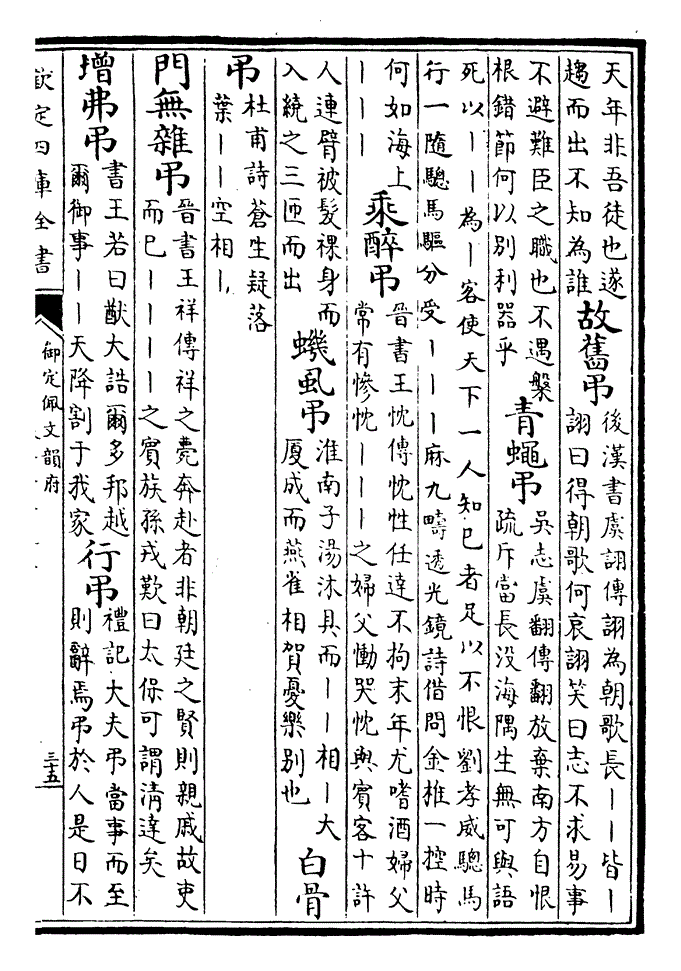 天年非吾徒也遂
趨而出不知為誰
故舊弔
後漢書虞詡傳詡為朝歌長丨丨皆丨
詡曰得朝歌何哀詡笑曰志不求易事
不避難臣之職也不遇槃
根錯節何以別利器乎
青蠅弔
吳志虞翻傳翻放棄南方自恨
疏斥當長没海隅生無可與語
死以丨丨為丨客使天下一人知已者足以不恨劉孝威驄馬
行一隨驄馬驅分受丨丨丨麻九疇透光鏡詩借問金椎一控時
何如海上
丨丨丨
乘醉弔
晉書王忱傳忱性任達不拘末年尤嗜酒婦父
常有慘忱丨丨丨之婦父慟哭忱與賓客十許
人連臂被髮裸身而
入繞之三匝而出
蟣虱弔
淮南子湯沐具而丨丨相丨大
厦成而燕雀相賀憂樂別也
白骨
弔
杜甫詩蒼生疑落
葉丨丨空相丨
門無雜弔
晉書王祥傳祥之薨奔赴者非朝廷之賢則親戚故吏
而已丨丨丨丨之賓族孫戎歎曰太保可謂清達矣
增弗弔
書王若曰猷大誥爾多邦越
爾御事丨丨天降割于我家
行弔
禮記大夫弔當事而至
則辭焉弔於人是日不
欽定四庫全書
御定佩文韻府
三十五